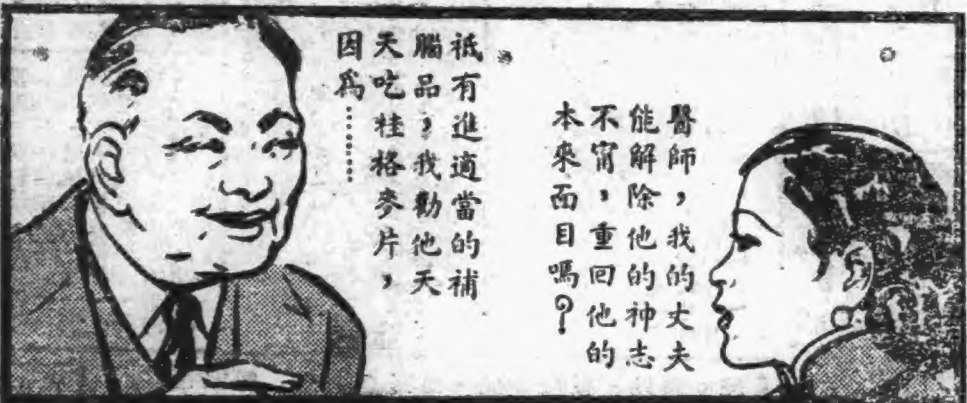 醫師，我的丈夫
能解除他的神志
不甯，重回他的
本來面目嗎？
祇有進適當的補
腦品，我勸他天
天吃桂格麥片，
因爲………